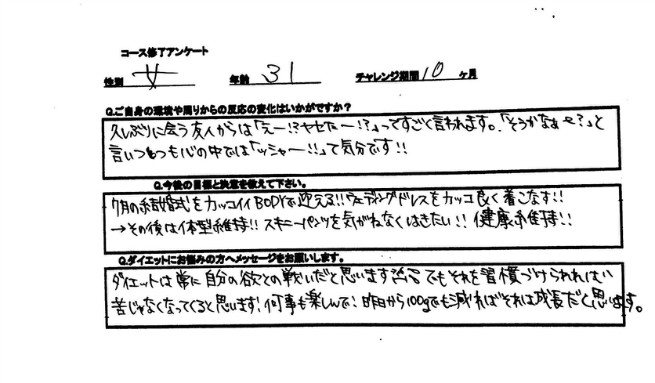 コース修了アンケート
性別 女 年齢 31 チャレンジ期間 10 ヶ月
Q.ご自身の環境や周りからの反応の変化はいかがですか？
久しぶりに会う友人からは「えー!?ヤセたー!?」ってすごく言われます。「そうかなぁ〜?」と
言いつつも心の中では「ッシャー!!」って気分です!!
Q.今後の目標と決意を教えて下さい。
7月の結婚式をカッコイイBODYで迎える!!ウェディングドレスをカッコ良く着こなす!!
→その後は体型維持!!スキニーパンツを気がねなくはきたい!!健康維持!!
Q.ダイエットにお悩みの方へメッセージをお願いします。
ダイエットは常に自分の欲との戦いだと思います でもそれを習慣づけられれば
苦じゃなくなってくると思います!何事も楽しんで!昨日から100gでも減ればそれは成長だと思います。